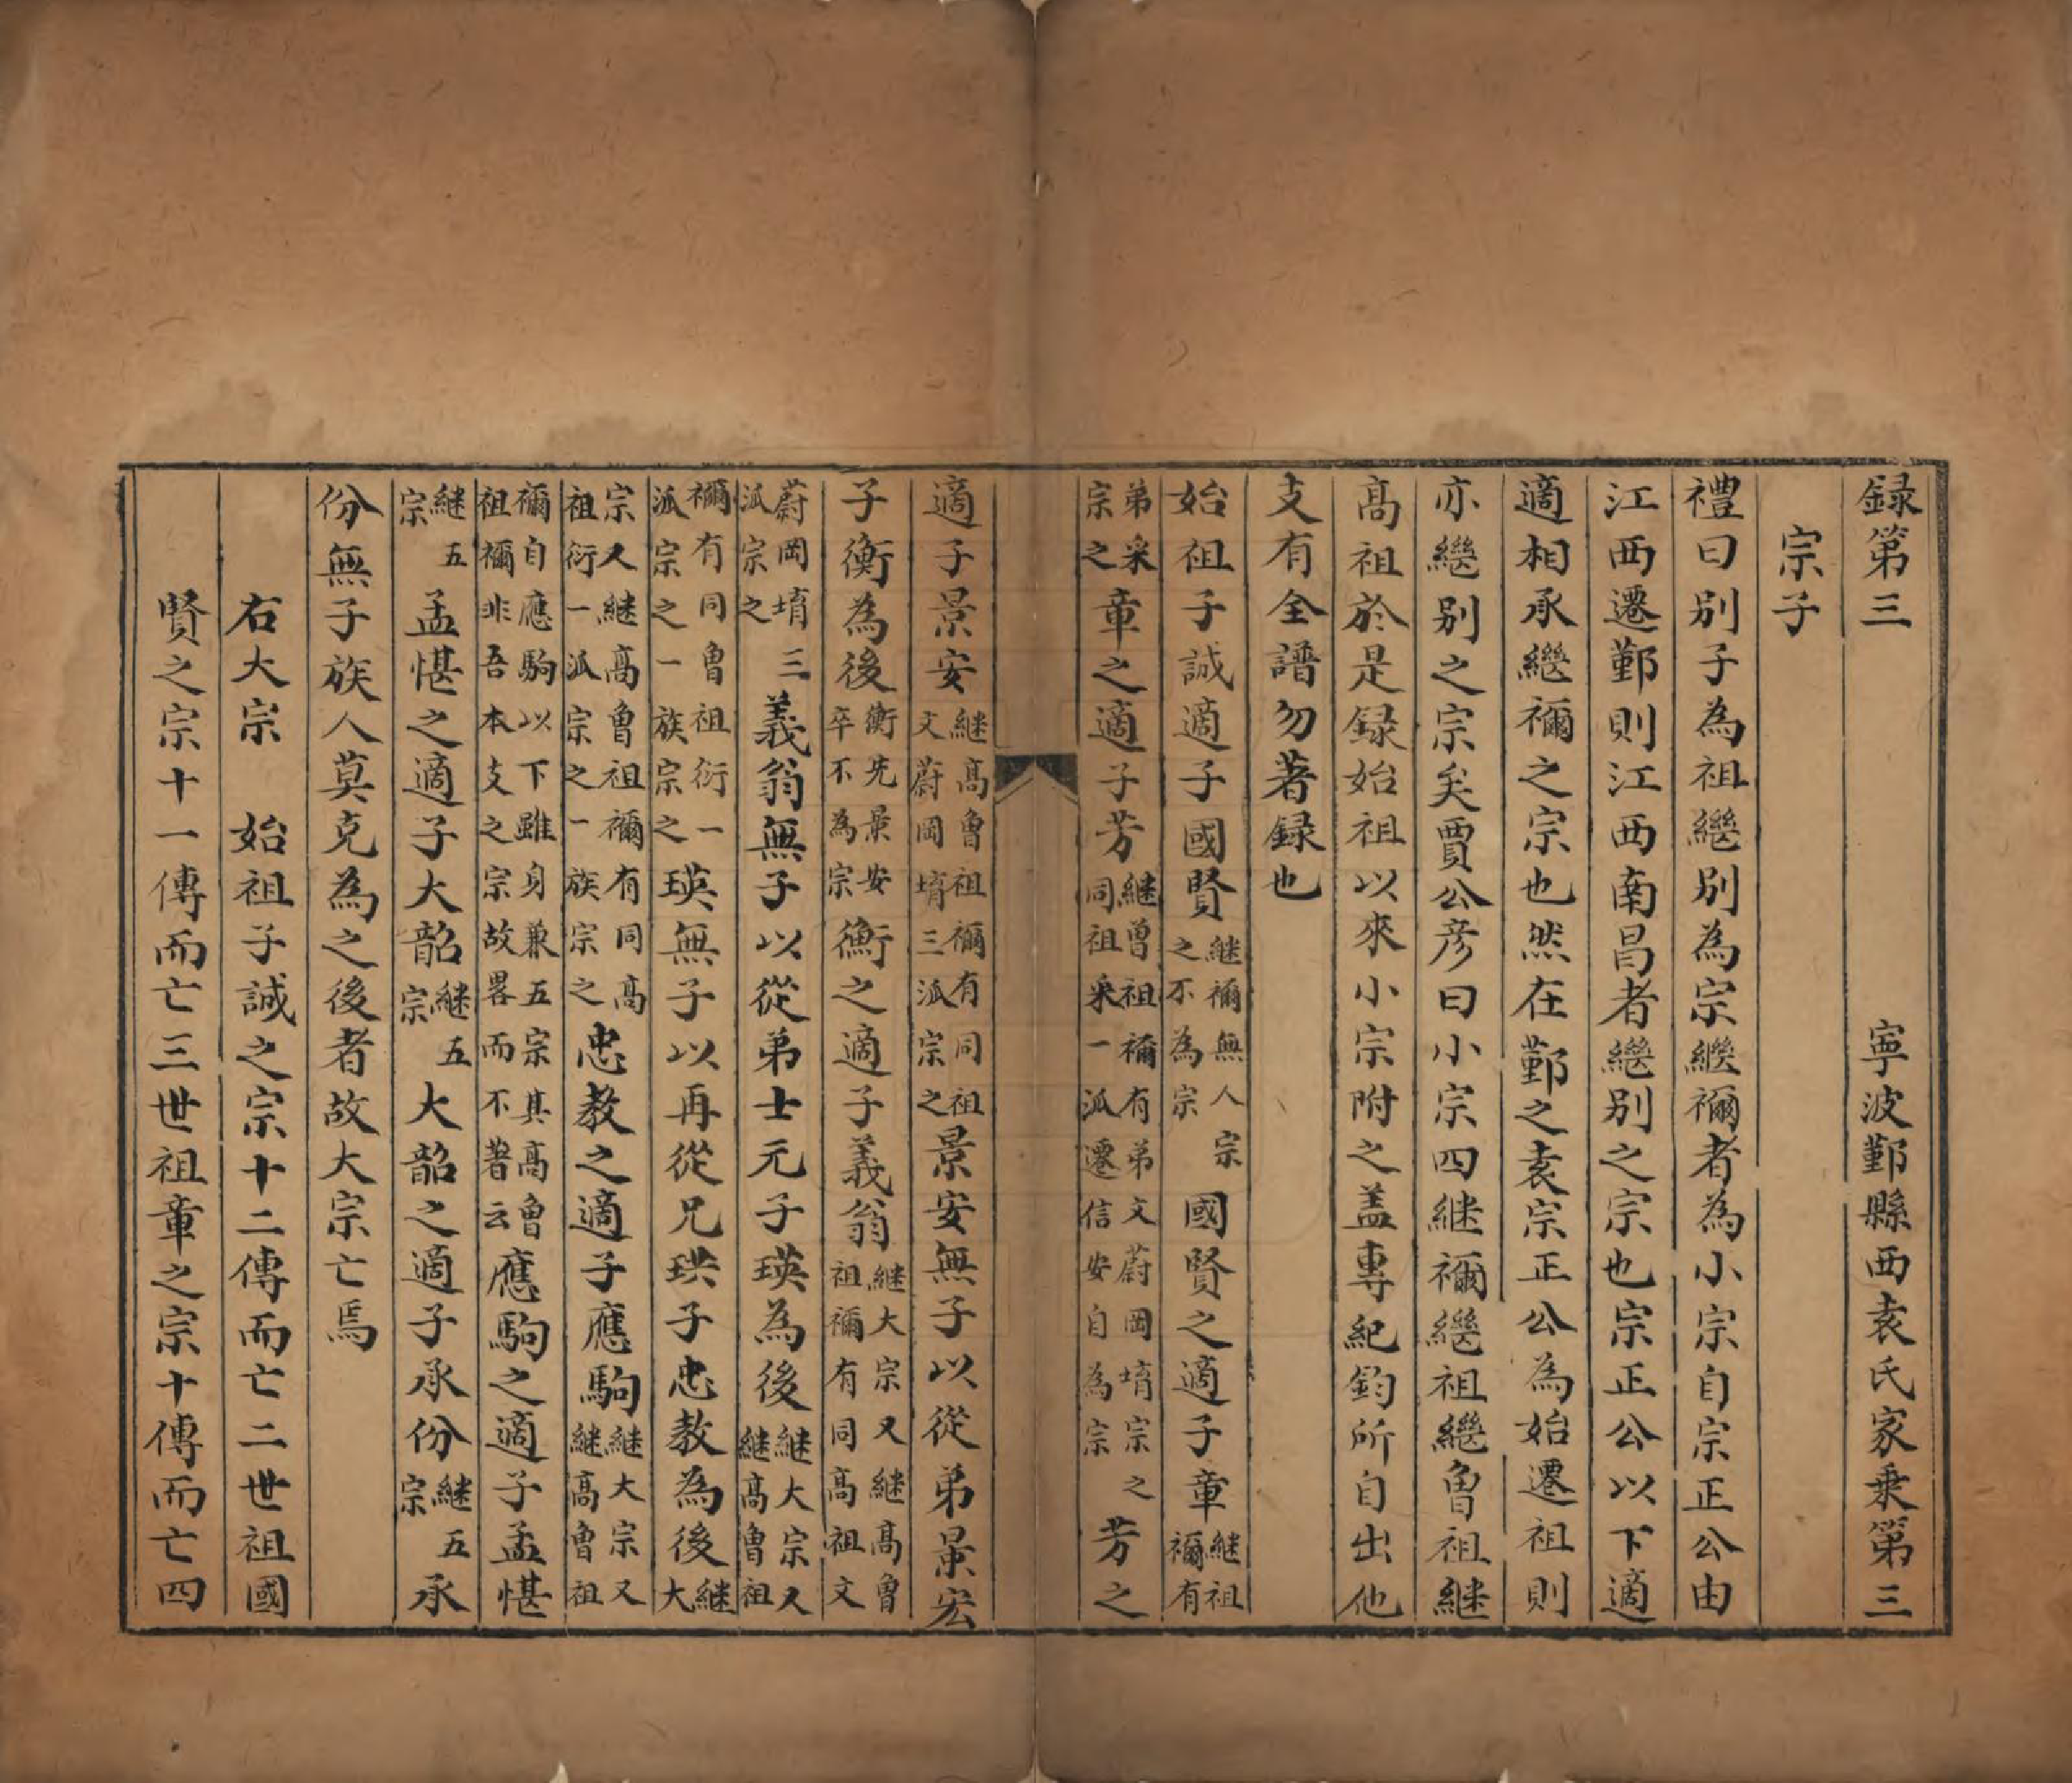 録第三　寧波鄞縣西袁氏家乗第三
宗子
禮曰别子為祖繼别為宗繼禰者為小宗自宗正公由
江西遷鄞則江西南昌者繼别之宗也宗正公以下適
適相承繼禰之宗也然在鄞之袁宗正公為始遷祖則
亦繼别之宗矣賈公彦曰小宗四継禰繼祖繼曾祖継
高祖於是録始祖以來小宗附之盖專紀鈞所自出他
支有全譜勿著録也
始祖子誠適子國賢継禰無人宗之不為宗國賢之適子章継祖禰有
弟采宗之章之適子芳継曾祖禰有弟文蔚岡堉宗之同祖采一派遷信安自為宗芳之
適子景安継高曾祖禰有同祖文蔚岡堉三派宗之景安無子以從弟景宏
子衡為後衡先景安卒不為宗衡之適子義翁継大宗又継高曾祖禰有同高祖文
蔚岡堉三派宗之義翁無子以從弟士元子瑛為後継大宗又継高曾祖
禰有同曾祖衍一派宗之一族宗之瑛無子以再從兄珙子忠教為後継大
宗又継高曾祖禰有同高祖衍一派宗之一族宗之忠教之適子應駒継大宗又継高曾祖
禰自應駒以下雖身兼五宗其高曾祖禰非吾本支之宗故畧而不著云應駒之適子孟愖
継五宗孟愖之適子大韶継五宗大韶之適子承份継五宗承
份無子族人莫克為之後者故大宗亡焉
右大宗　始祖子誠之宗十二傳而亡二世祖國
賢之宗十一傳而亡三世祖章之宗十傳而亡四